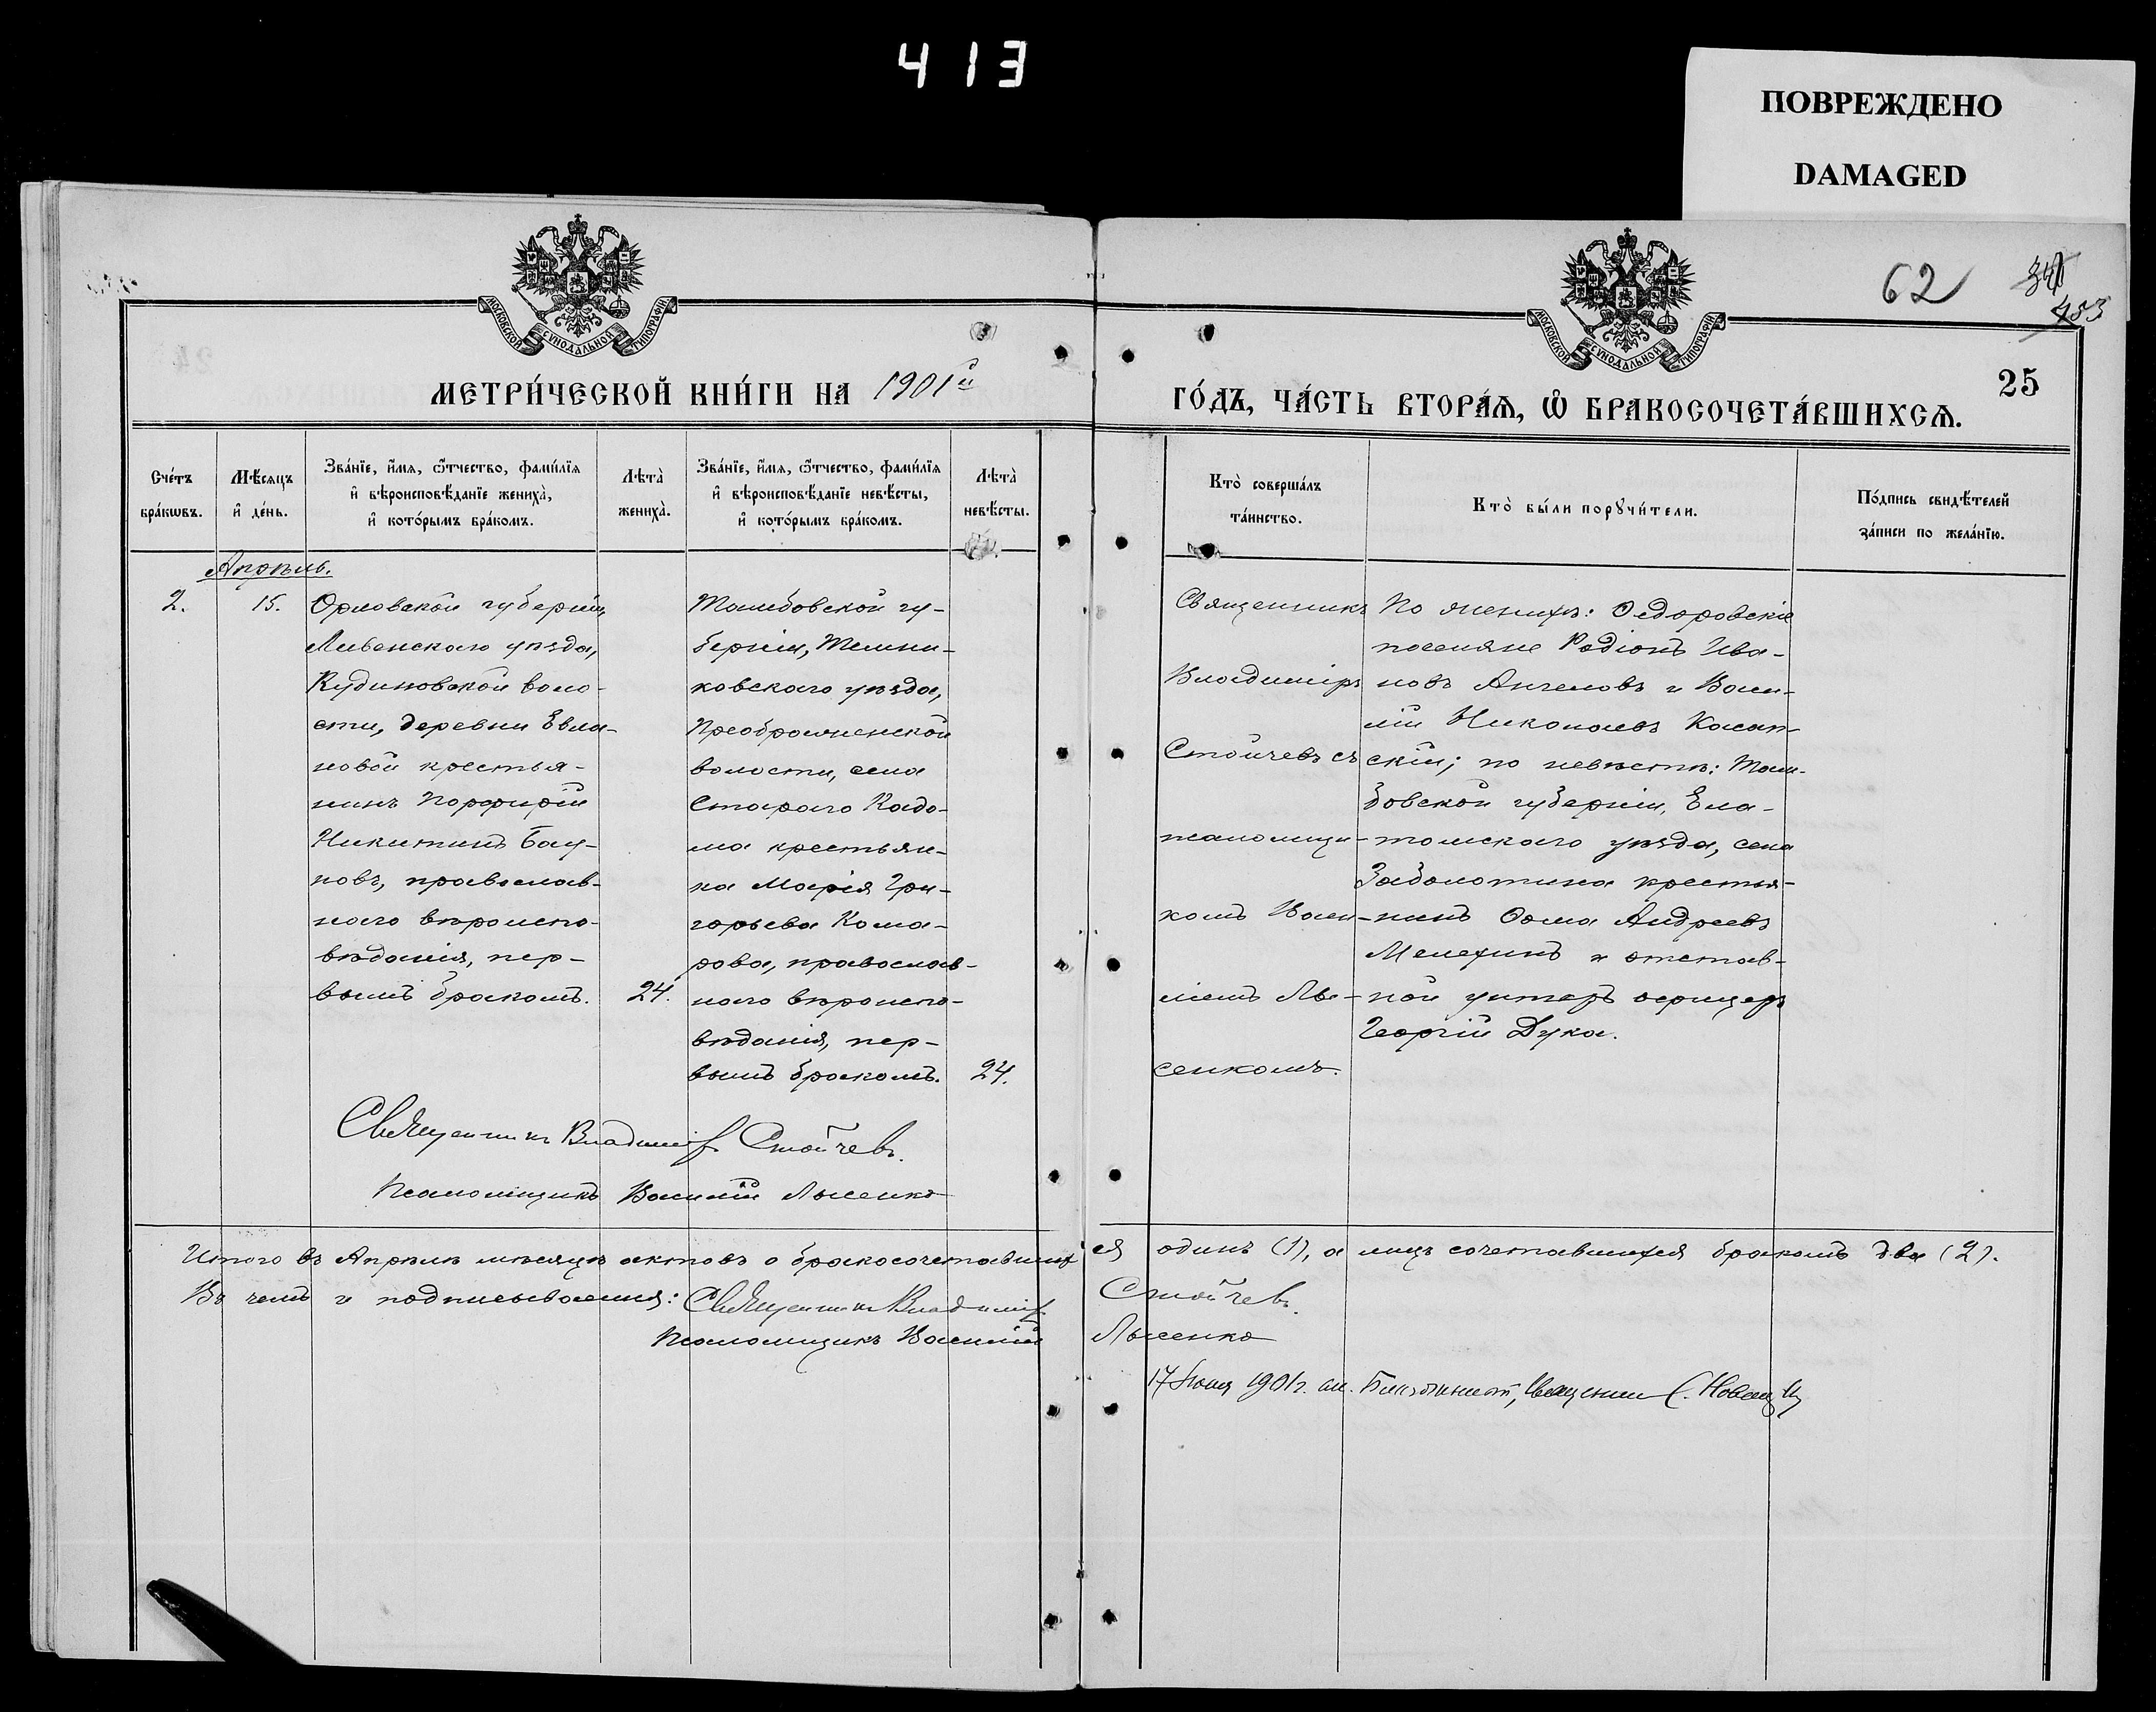 413
ПОВРЕЖДЕНО
DAMAGED
62
453
МОСКОВСКОЙ СѴНОДАЛЬНОЙ ТИПОГРАФІИ
МОСКОВСКОЙ СѴНОДАЛЬНОЙ ТИПОГРАФІИ
25
МЕТРИ́ЧЕСКОЙ КНИ́ГИ НА 1901й
ГО́ДЪ, ЧА́СТЬ ВТОРА́Я, Ѡ БРАКОСОЧЕТА́ВШИХСЯ.
Сче́тъ
бра́кѡвъ.
Мѣ́сяцъ
и҆ де́нь.
Зва́нїе, и҆́мя, ѻ҆́тчество, фами́лїя
и҆ вѣроисповѣ́данїе жениха̀,
и҆ кото́рымъ бра́комъ.
Лѣта̀
жениха̀.
Зва́нїе, и҆́мя, ѻ҆́тчество, фами́лїя
и҆ вѣроисповѣ́данїе невѣ́сты,
и҆ кото́рымъ бра́комъ.
Лѣта̀
невѣ́сты.
Кто̀ соверша́лъ
та́инство.
Кто̀ бы́ли порꙋчи́тели.
По́дпись свидѣ́телей
за́писи по жела́нїю.
Апрѣль.
2.
15.
Орловской губерніи,
Ливенскаго уѣзда,
Кудиновской воло-
сти, деревни Евла-
новой крестья-
нинъ Порфирій
Никитинъ Бау-
ковъ, православ-
наго вѣроиспо-
вѣданія, пер-
вымъ бракомъ.
24.
Тамбовской гу-
берніи, Темни-
ковскаго уѣзда,
Преображенской
волости, села
Стараго Кадо-
ма крестьян-
ка Марія Гри-
горьева Кома-
рова, православ-
наго вѣроиспо-
вѣданія, пер-
вымъ бракомъ.
24.
Священникъ
Владиміръ
Стойчевъ съ
псаломщи-
комъ Васи-
ліемъ Лы-
сенкомъ.
По женихѣ: Ѳедоровскіе
поселяне Радіонъ Ива-
новъ Ангеловъ и Васи-
лій Николаевъ Касап-
скій; по невѣстѣ: Там-
бовской губерніи, Ела-
томскаго уѣзда, села
Заболотина крестья-
нинъ Ѳома Андреевъ
Мелехинъ и отстав-
ной унтеръ офицеръ
Георгій Дука.
Священникъ Владиміръ Стойчевъ.
Псаломщикъ Василій Лысенко
Итого въ Апрѣлѣ мѣсяцѣ актовъ о бракосочетавшихся одинъ (1), а лицъ сочетавшихся бракомъ два (2).
Въ чемъ и подписываемся: Священникъ Владиміръ Стойчевъ.
Псаломщикъ Василій Лысенко
17 Іюня 1901 г.